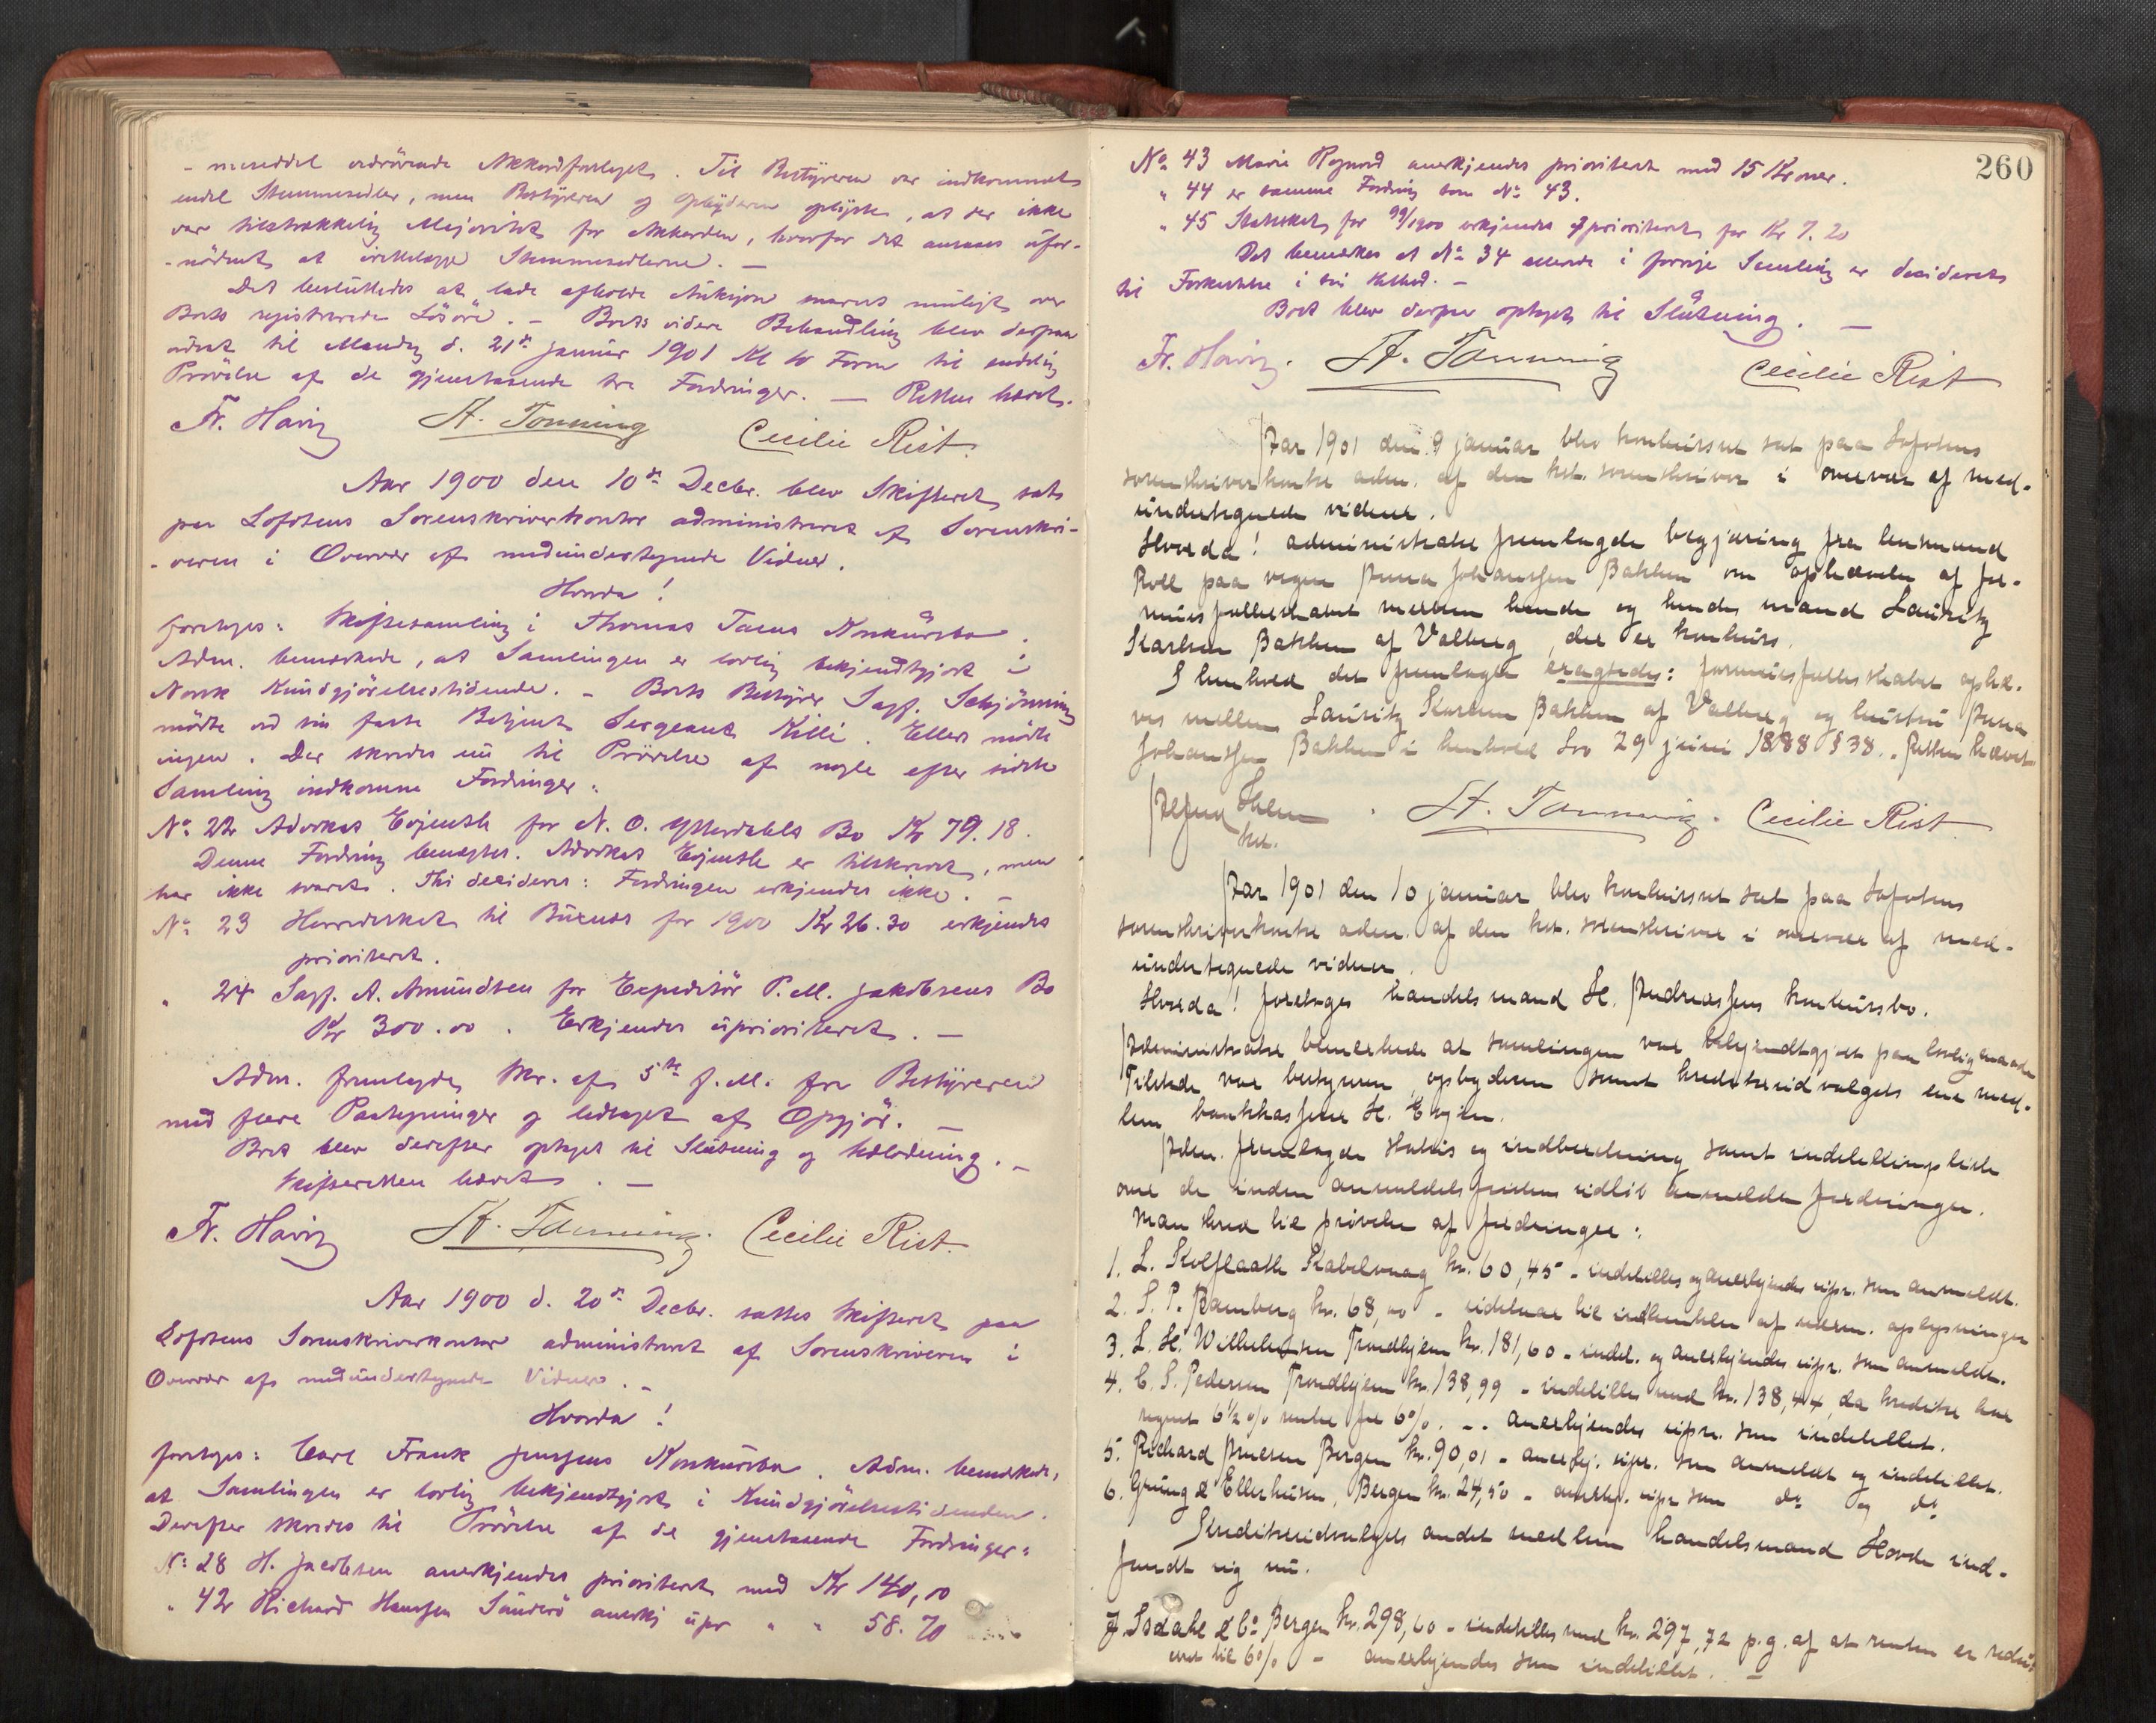 - meddel vedrörende Akkordforslaget. Til Bestyreren var indkommet
endel Stemmesedler, men Bestyreren og Opbyderen oplyste, at der ikke
var tilstrækkelig Majoritet for Akkorden, hvorfor det ansaaes ufor-
-nödent at irettelægge Stemmesedlerne. —
Det besluttedes at lade afholde Auksjon snarest muligt over
Boets registrerede Lösöre. — Boets videre Behandling blev derpaa
udsat til Mandag d. 21de januar 1901 Kl 10 Form til endelig
Prövelse af de gjenstaaende tre Fordringer. — Retten hævet.
Fr. Havig St. Tonning Cecilie Rist.
Aar 1900 den 10de Decbr. blev Skifteret sat
paa Lofotens Sorenskriverkontor administreret af Sorenskri-
-veren i Overvær af medundertegnede Vidner.
Hvorda!
foretoges: Skiftesamling i Thomas Ta Konkursbo.
Adm. bemærkede, at Samlingen er lovlig bekjendtgjort i
Norsk Kundgjörelsestidende. - Boets Bestyrer Sagf. Schjönning
mödte ved sin faste Betjent Sergeant Killi. Ellers mödte
ingen. Der skredes nu til Prövelse af nogle efter sidste
Samling indkomne Fordringer:
No 22 Advokat Evjenth for N. O. Ytterdahls Bo Kr 79.18.
Denne Fordring benegtes. Advokat Evjenth er tilskrevet, men
har ikke svaret. Thi decideres: Fordringen erkjendes ikke. —
No 23 Herredsskat til Buxnes for 1900 Kr 26.30 erkjendes
prioriteret.
" 24 Sagf. A. Amundsen for Expeditör P. M. jakobsens Bo
Kr 300.00. Erkjendes uprioriteret. —
Adm. fremlagde Skr. af 5te f. M. fra Bestyreren
med flere Paategninger og ledsaget af Opgjör. —
Boet blev derefter optaget til Slutning og Udlodning. —
Skifteretten hævet. —
Fr. Havig St. Tonning. Cecilie Rist.
Aar 1900 d. 20de Decbr. sattes Skifteret paa
Lofotens Sorenskriverkontor administreret af Sorenskriveren i
Overvær af medundertegnede Vidner. —
Hvorda!
foretoges: Carl Frank jenssens Konkursbo. Adm. bemærkede,
at Samlingen er lovlig bekjendtgjort i Kundgjörelsestidenden.
Derefter skredes til Prövelse af de gjenstaaende Fordringer:
No 28 H. jacobsen anerkjendes prioriteret med Kr 140,00
" 42 Richard Hanssen Sanderö anerkj upr " " 58.70
260
No 43 Marie Rognerud anerkjendes prioriteret med 15 Kroner.
" 44 er samme Fordring som No 43.
" 45 Statsskat for 99/1900 erkjendes prioriteret for Kr 7.20
Det bemærkes at No 34 allerede i forrige Samling er decideret
til Forkastelse i sin Helhed. —
Boet blev derpaa optaget til Slutning. —
Fr. Havig. St. Tonning Cecilie Rist
Aar 1901 den 9 januar blev konkursret sat paa Lofotens
sorenskriverkontor adm. af den kst. sorenskriver i overvær af med-
undertegnede vidner.
Hvorda! administrator fremlagde begjæring fra lensmand
Roll paa vegne Anna Johanssen Bakken om ophævelse af for-
muesfællesskabet mellem hende og hendes mand Lauritz
Karlsen Bakken af Valberg, der er konkurs.
I henhold det fremlagte eragtedes: formuesfællesskabet ophæ-
ves mellem Lauritz Karlsen Bakken af Valberg og hustru Anna
Johanssen Bakken i henhold Lov 29 juni 1888 § 38. . Retten hævet.
kst. St. Tonning. Cecilie Rist.
Aar 1901 den 10 januar blev konkursret sat paa Lofotens
sorenskriverkontor adm. af den kst. sorenskriver i overvær af med-
undertegnede vidner.
Hvorda! foretoges handelsmand H. Andreassens konkursbo.
Administrator bemerkede at samlingen var bekjendtgjort paa lovlig maade
Tilstede var bestyreren, opbyderen samt kreditoridvalgets ene med-
lem bankkasserer H. Evjen.
Adm. fremlagde status og indberetning samt indstillingsliste
over de inden anmeldelsesfristens udløb anmeldte fordringer.
Man skred til prøvelse af fordringer:
1. L. Kolflaath Kabelvaag kr. 60,45 - indstilles og anerkjendes upr. som anmeldt.
2. S. P. Ramberg kr. 68,00 - udstaar til indhentelse af nærm. oplysninger
3. L. H. Wilhelmsen Trondhjem kr. 181,60 - indst. og anerkjendes upr. som anmeldt.
4. C. S. Pedersen Trondhjem kr. 138,99 - indstilles med kr. 138,44, da kreditor har
regnet 6½ % rente for 6%. -. anerkjendes upr. som indstillet.
5. Richard Bergen kr. 90,01 - anerkj. upr. som anmeldt og indstillet.
6. Grung & Ellerhusen, Bergen kr. 24,50 - anerkj. upr som do og do
Kreditoridvalgets andet medlem handelsmand Hovde ind-
fandt sig nu.
7. Isdahl & Co Bergen kr. 298,60 - indstilles med kr. 297,72 p.g. af at renten er redus-
eret til 6% - anerkjendes som indstillet. —